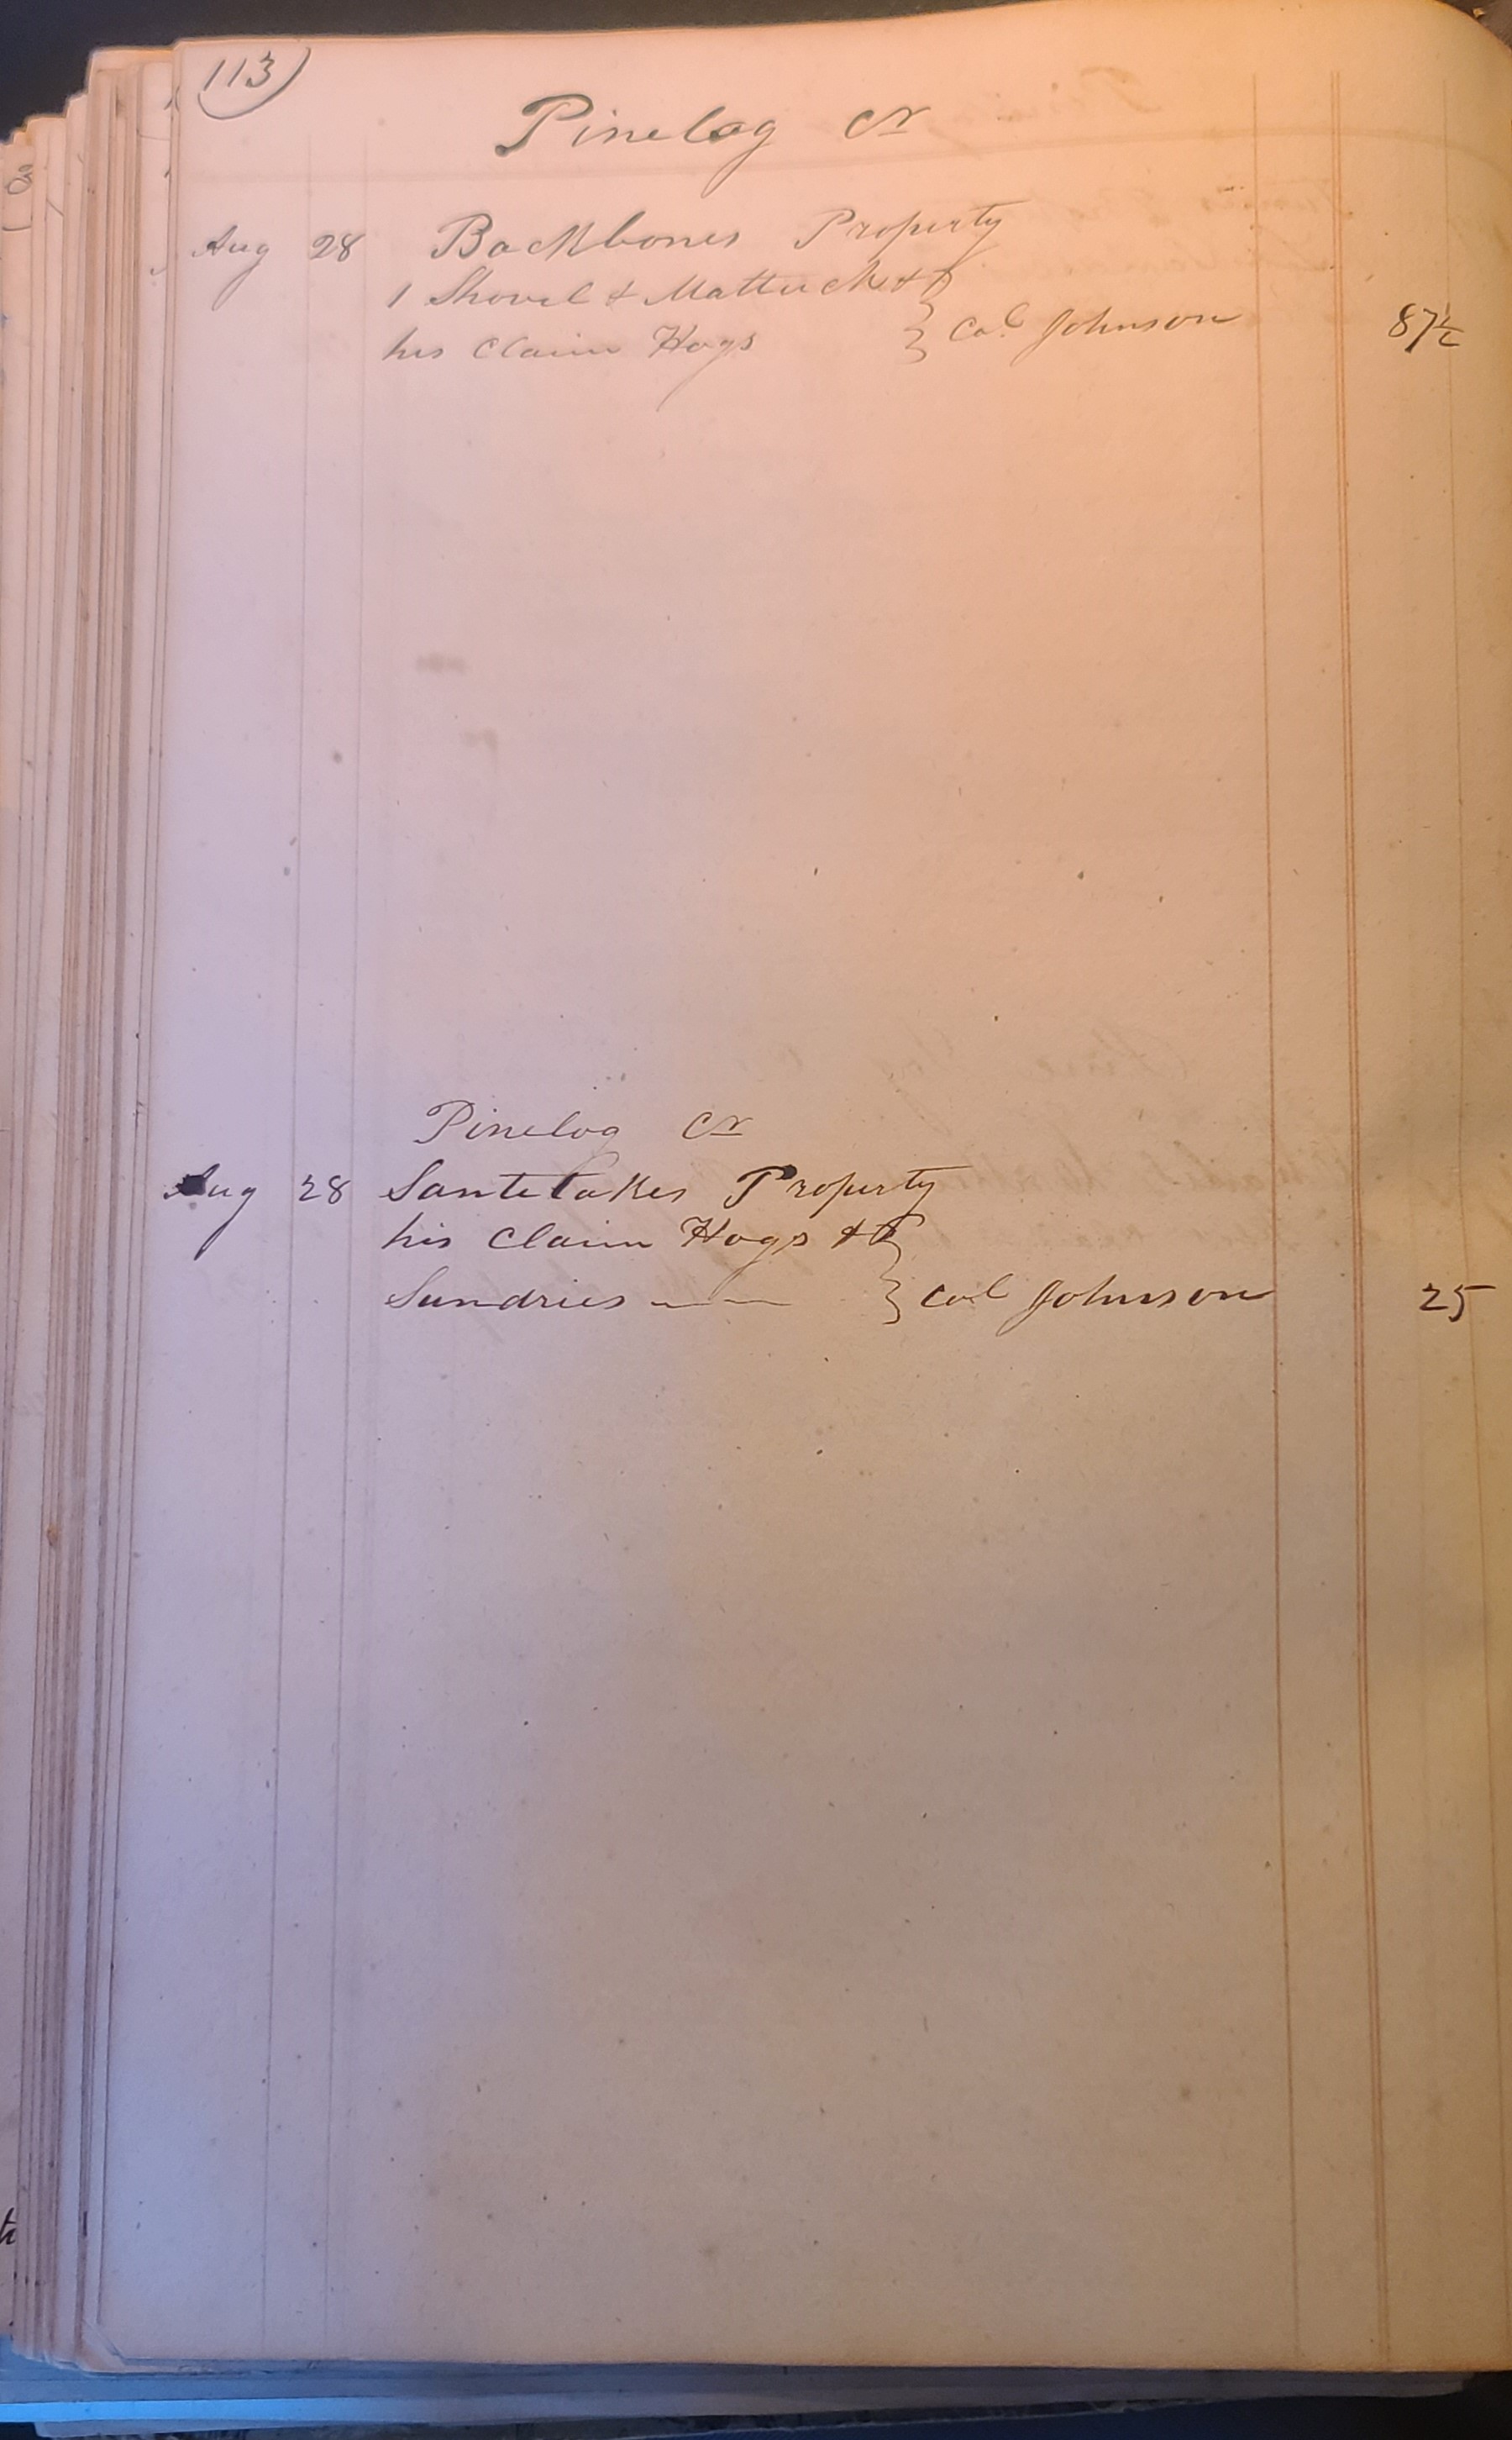 113
Pinelog Cr
Aug 28 Backbones Property
1 Shovel & Mattuck + }
his Claim Hogs } Col Johnson 87½
Pinelog Cr
Aug 28 Santetakes Property
his Claim Hogs + }
Sundries —— } Col Johnson 25